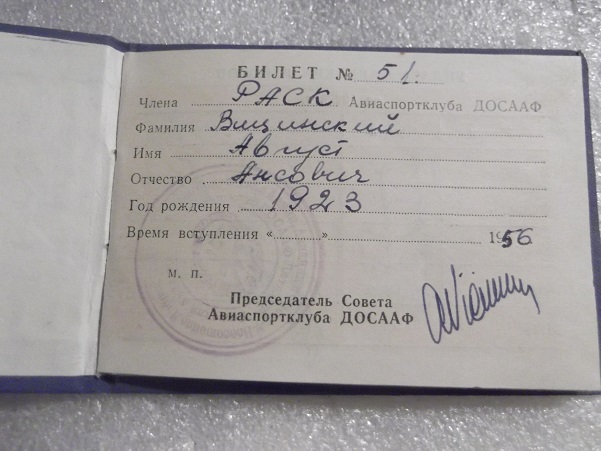 БИЛЕТ № 51.
Члена РАСК Авиаспортклуба ДОСААФ
Фамилия Вицинский
Имя Август
Отчество Ансович
Год рождения 1923
Время вступления «........» 1956
м. п.
Председатель Совета
Авиаспортклуба ДОСААФ